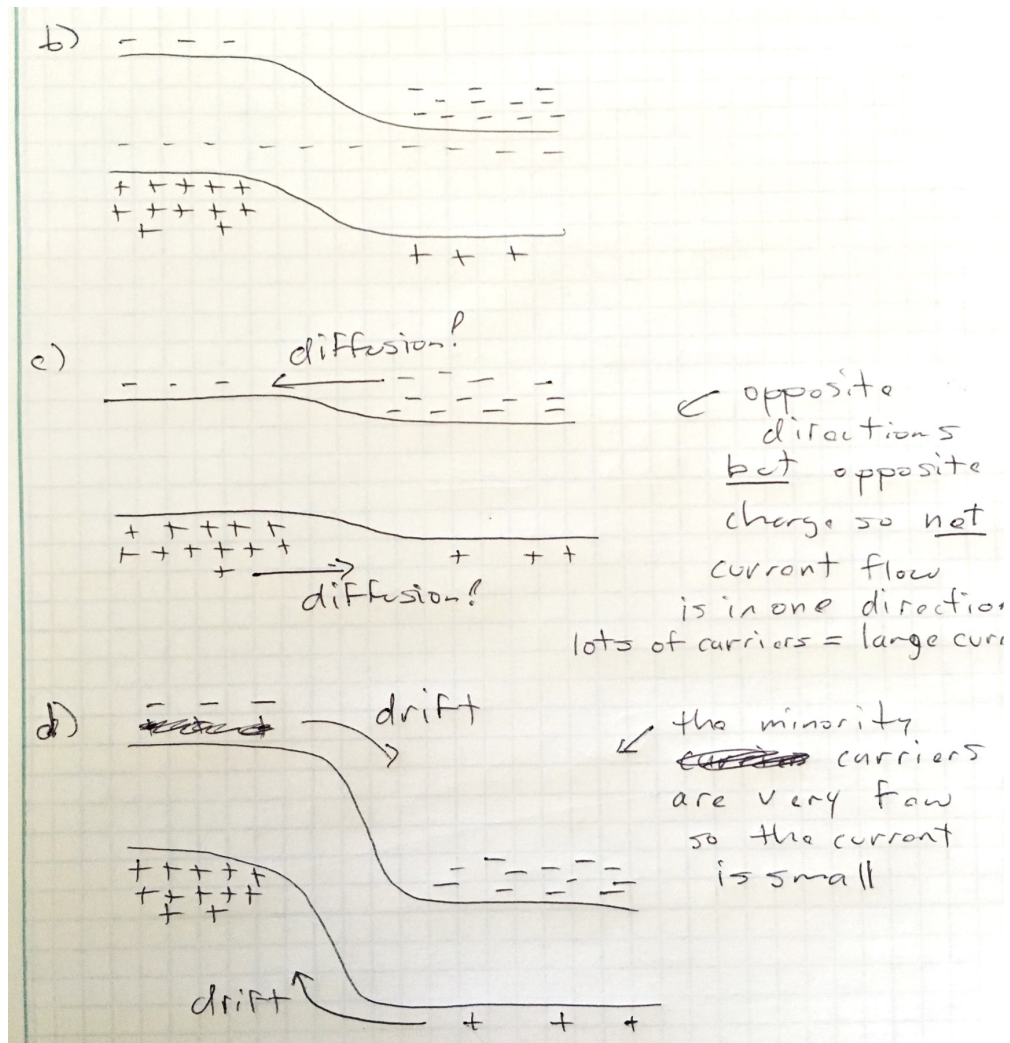 b)
c)
diffusion!
diffusion!
opposite
directions
but opposite
charge so net
current flow
is in one directio
lots of carriers = large curr
d)
drift
drift
the minority
carriers
are very few
so the current
is small